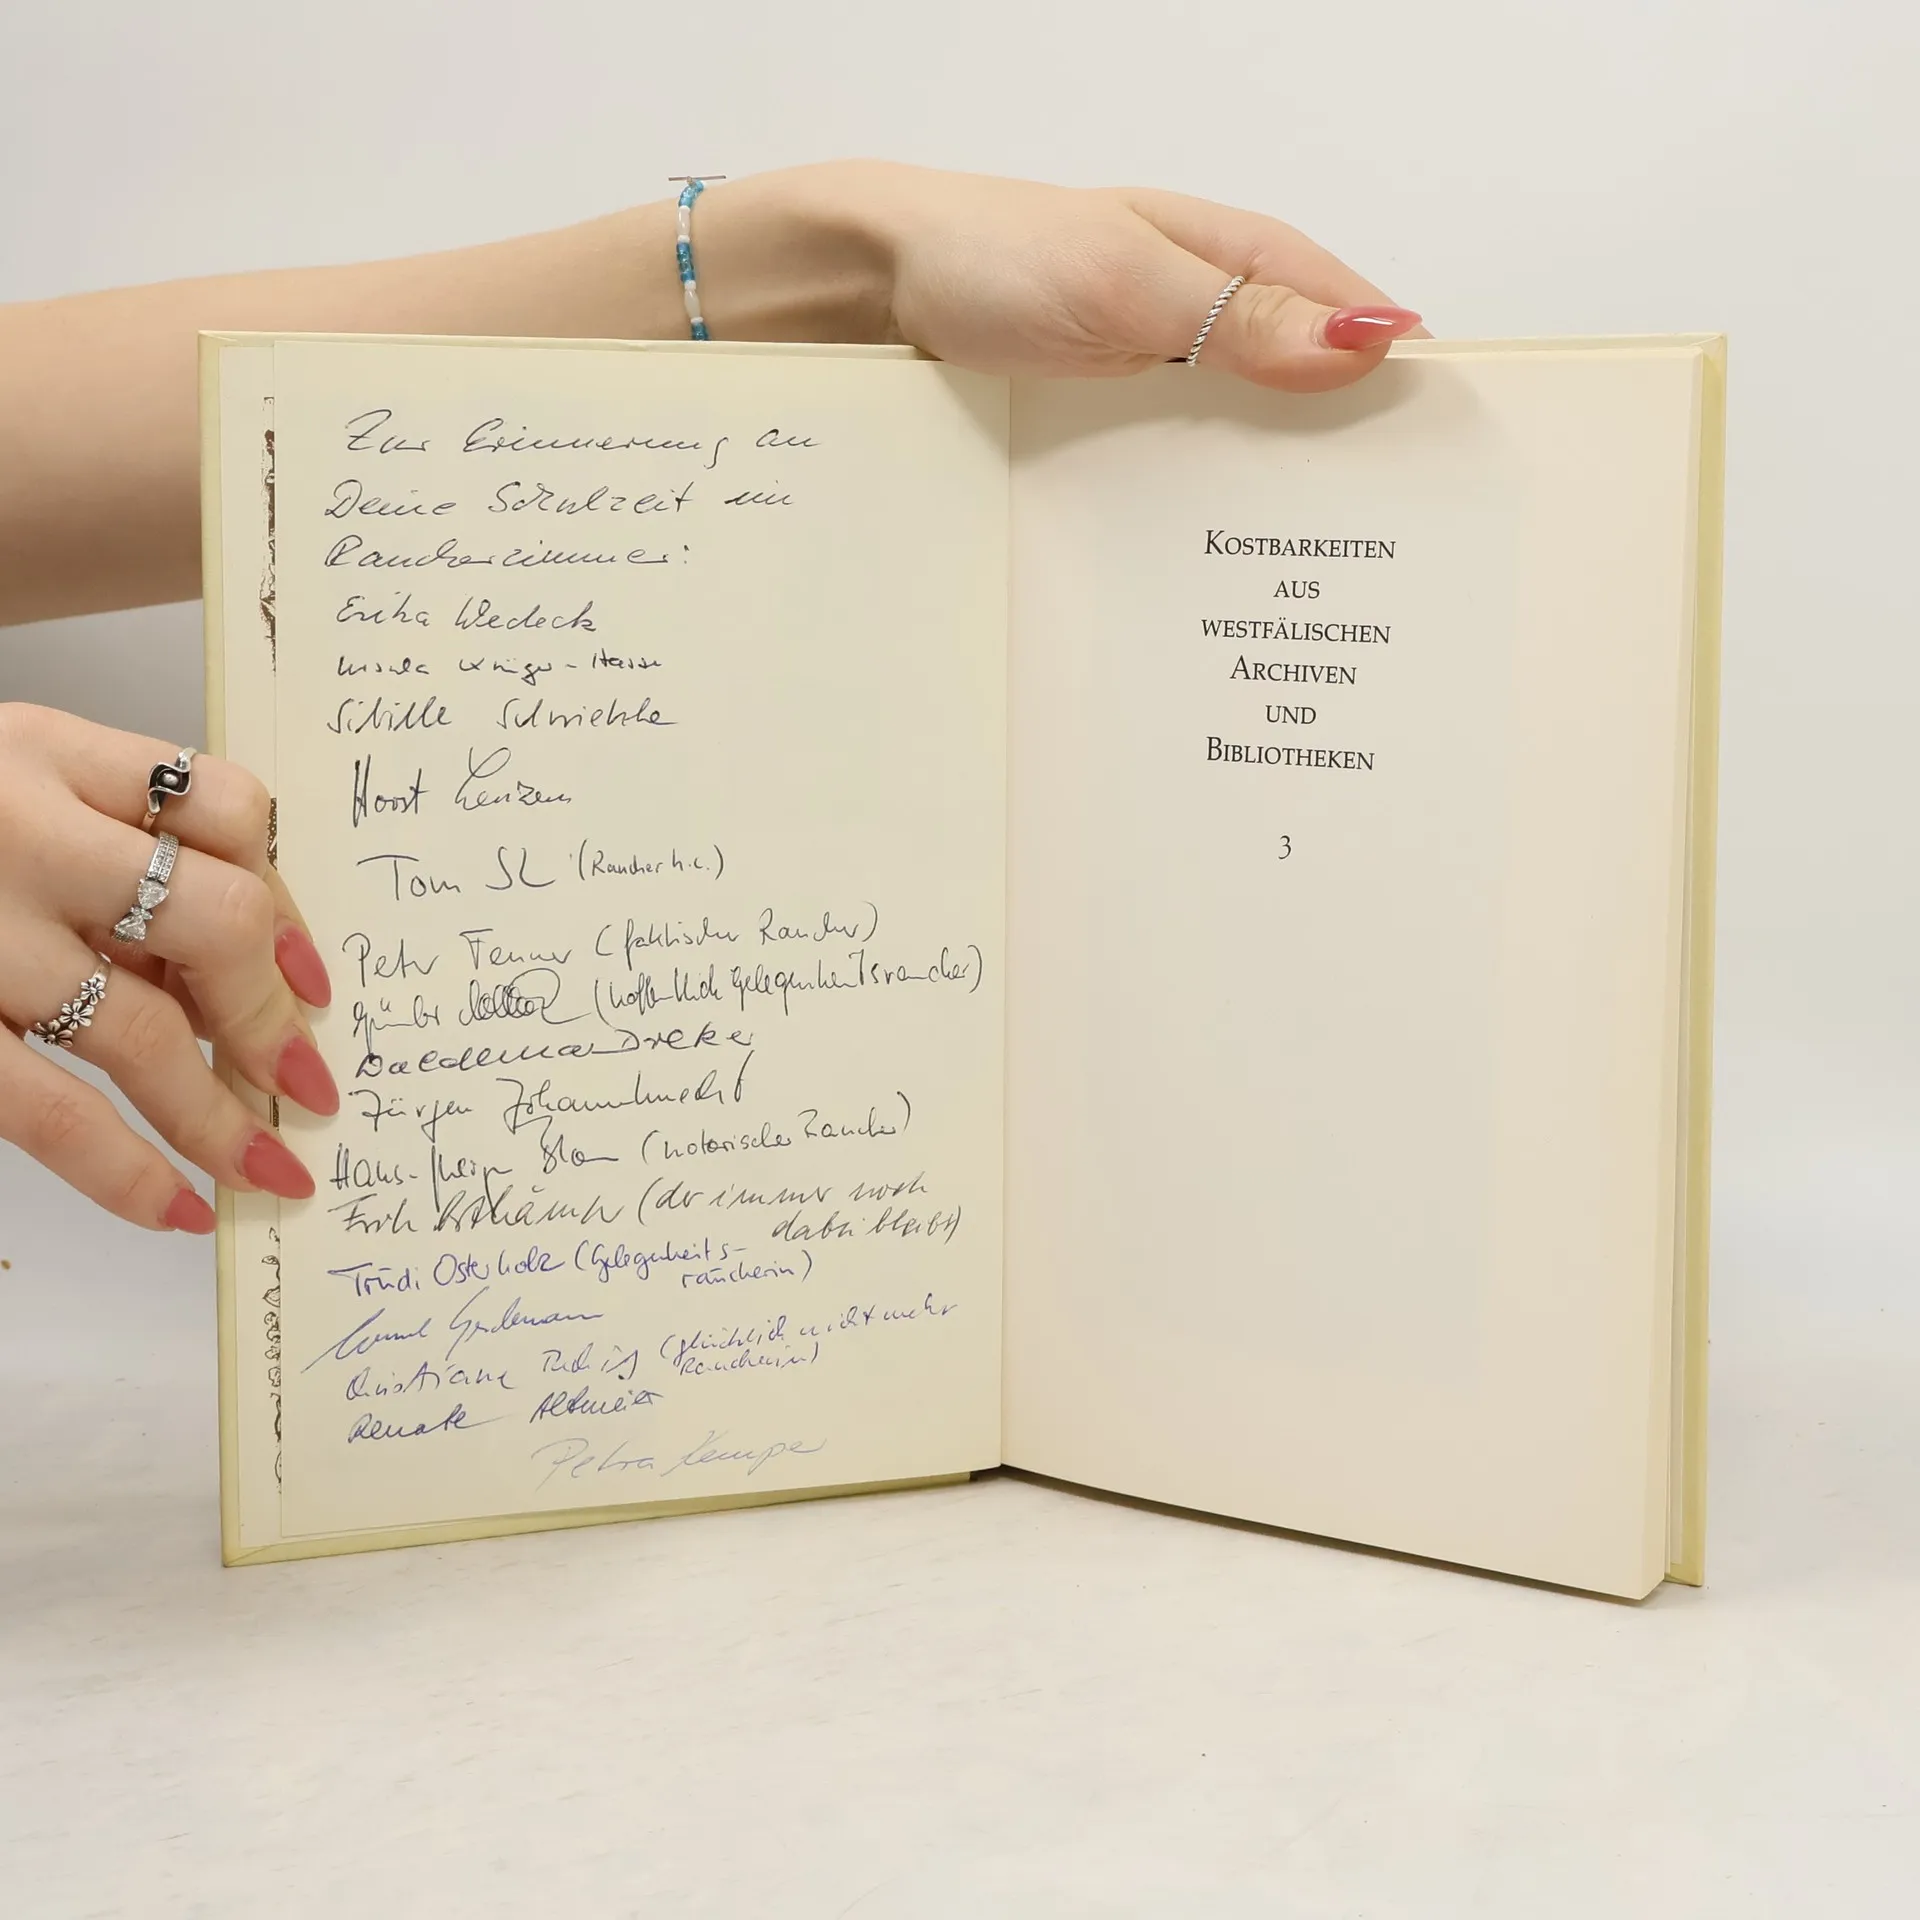 Zur Erinnerung an
Deine Schulzeit im
Raucherzimmer:
Erika Wedeck
Ursula Krüger-Hasse
Sibille
Horst Lenzen
Tom (Raucher h.c.)
Peter Fenner (faktischer Raucher)
Günter (hoffentlich Gelegenheitsraucher)
Waldemar Dreker
Jürgen Johannknecht
Hans-Jürgen Blom (notorischer Raucher)
Erich (der immer noch
dabei bleibt)
Trudi Osterholz (Gelegenheits-
raucherin)
Christiane (glücklich nicht mehr
Raucherin)
Renate Altmeier
Petra Kemper
KOSTBARKEITEN
AUS
WESTFÄLISCHEN
ARCHIVEN
UND
BIBLIOTHEKEN
3